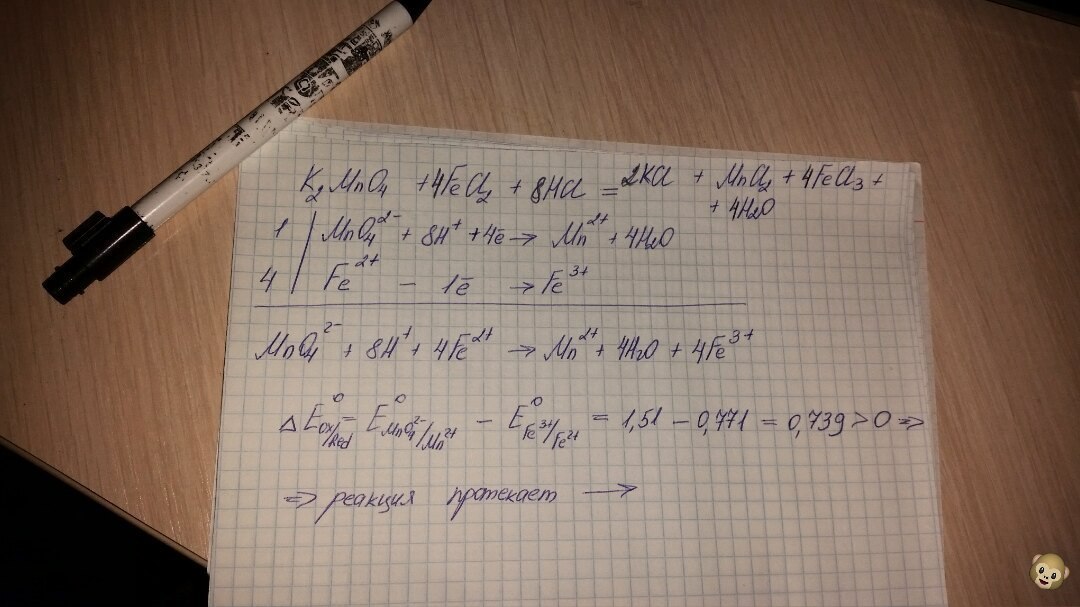 K₂MnO₄ + 4FeCl₂ + 8HCl = 2KCl + MnCl₂ + 4FeCl₃ +
+ 4H₂O
1 | MnO₄²⁻ + 8H⁺ + 4ē → Mn²⁺ + 4H₂O
4 | Fe²⁺ – 1ē → Fe³⁺
MnO₄²⁻ + 8H⁺ + 4Fe²⁺ → Mn²⁺ + 4H₂O + 4Fe³⁺
ΔE⁰ox/Red = E⁰MnO₄²⁻/Mn²⁺ – E⁰Fe³⁺/Fe²⁺ = 1,51 – 0,771 = 0,739 > 0 ⇒
⇒ реакция протекает →